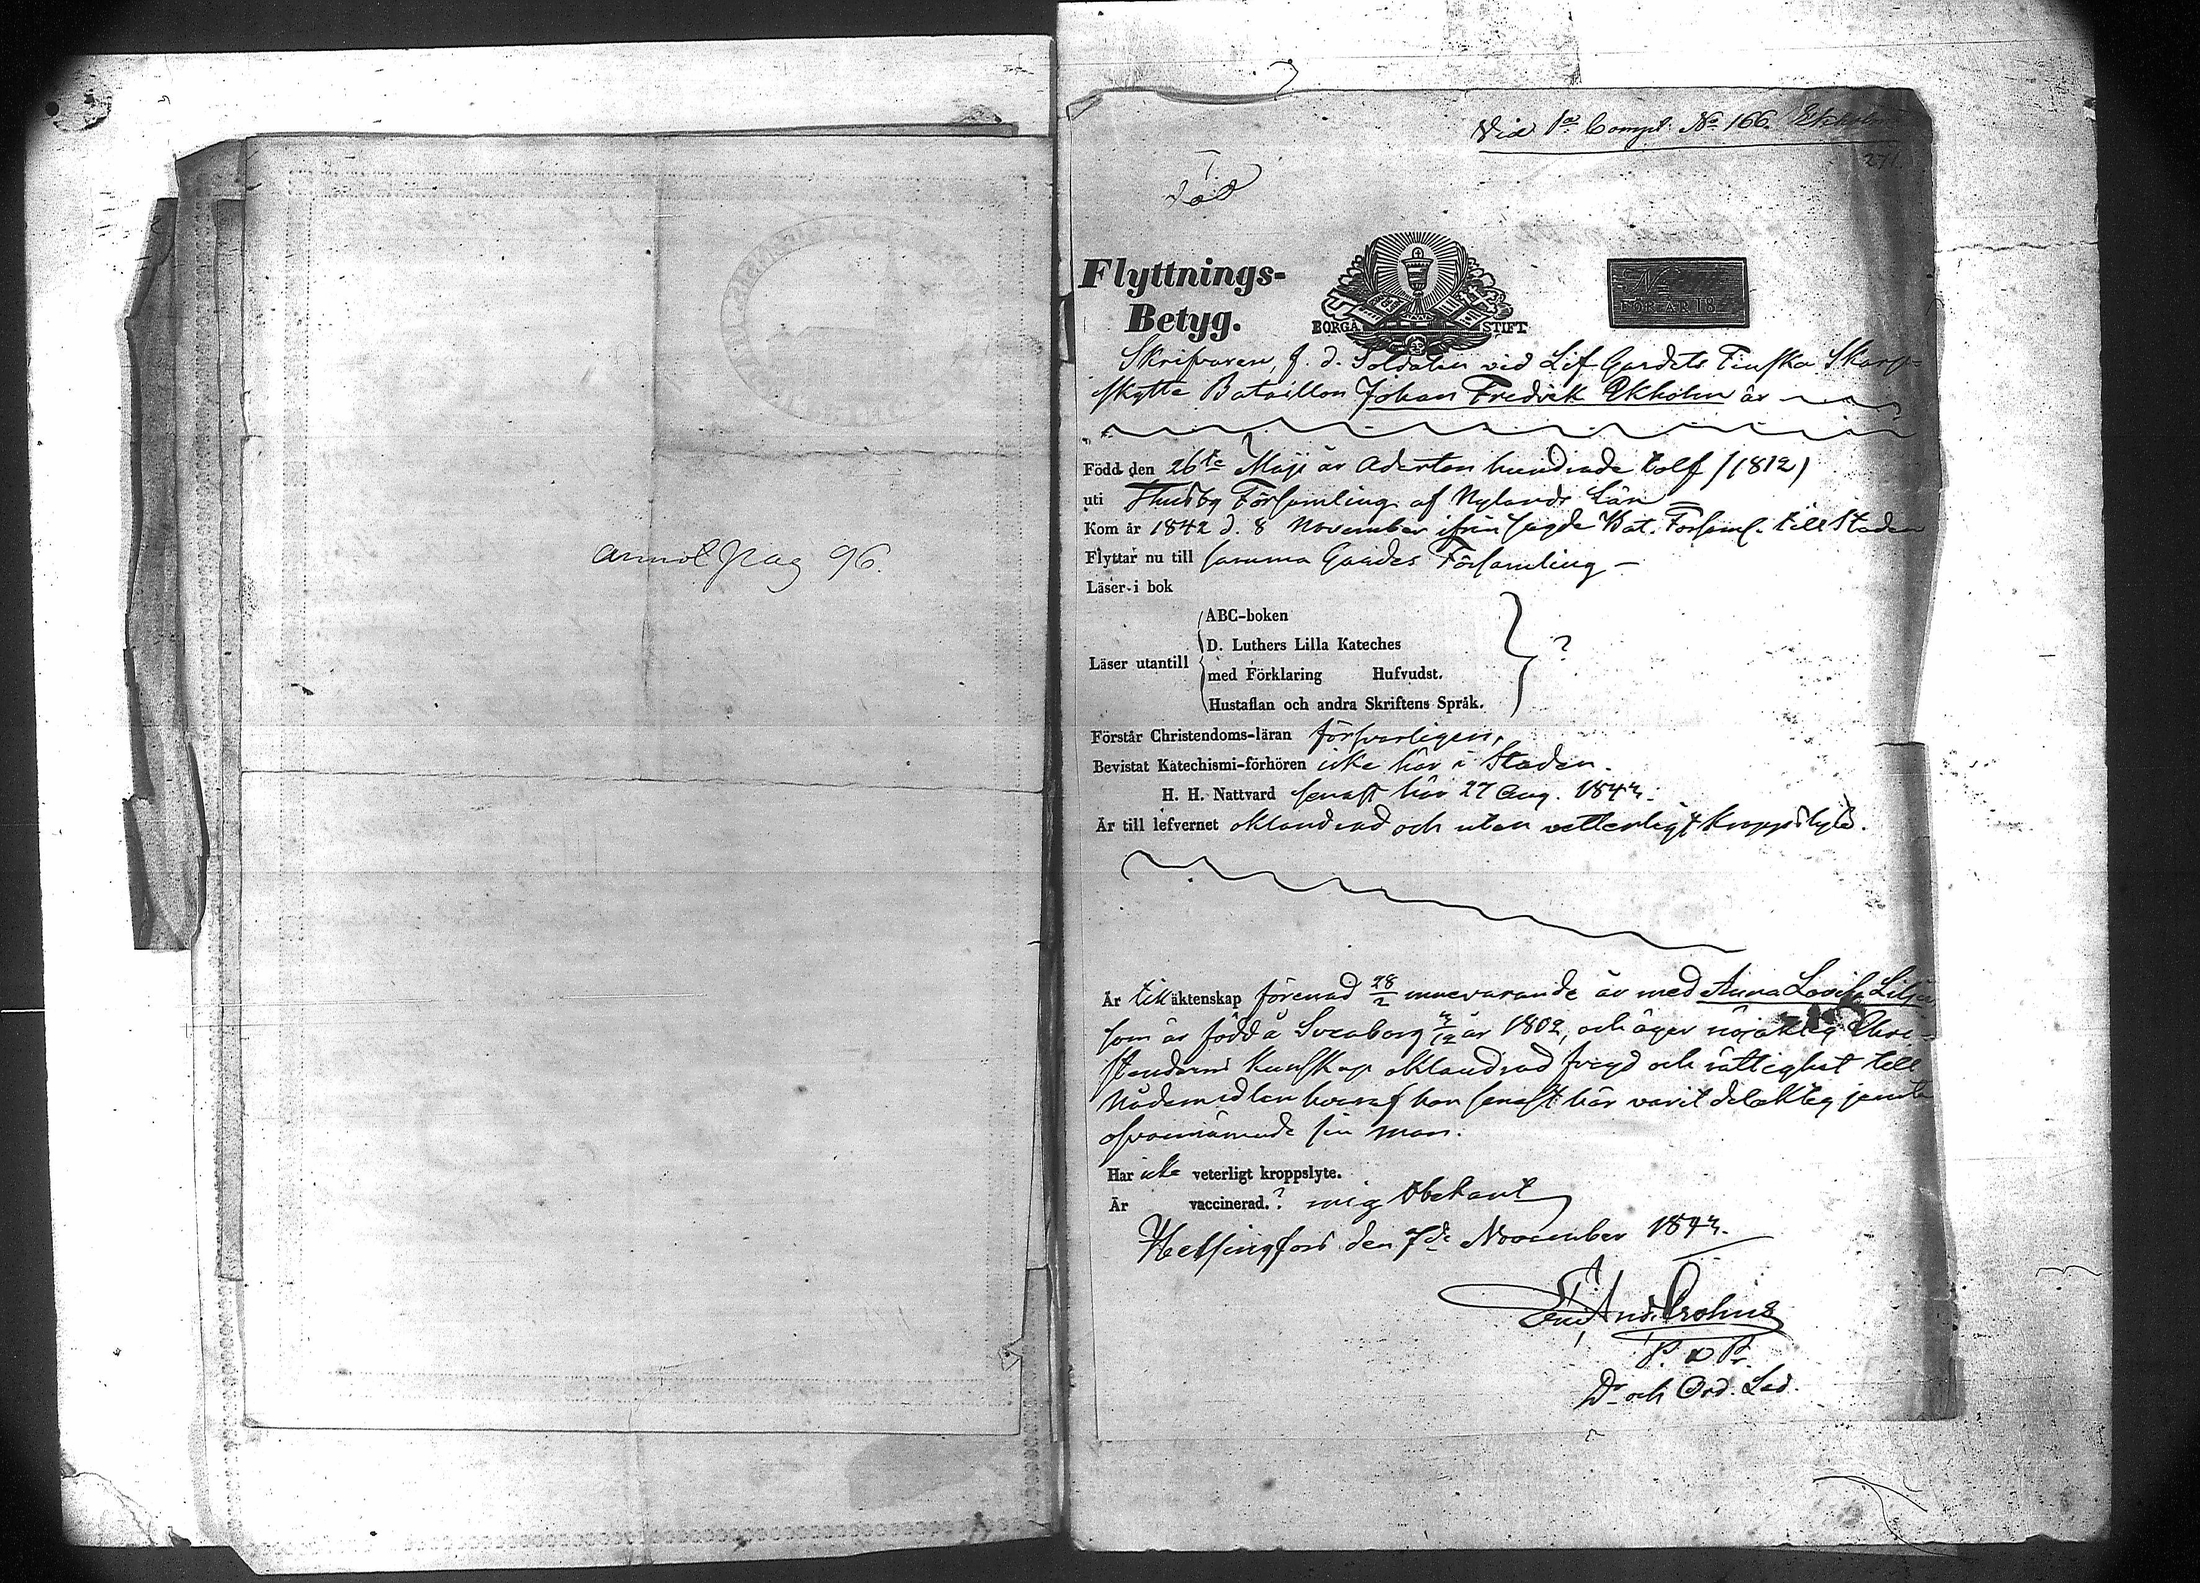 anmält pag 96.
Vid 1a Comp. No 166. Ekholm
271.
Död
Flyttnings-
Betyg.
BORGÅ STIFT
No
FÖR ÅR 18
Skrifvaren, f. d. Soldaten vid Lif Gardets Finska Skarp-
skytte Bataillon Johan Fredrik Ekholm är
Född den 26te Maji år Adertonhundrade tolf (1812)
uti Thusby Församling af Nylands Län
Kom år 1842 d. 8 November ifrån sagde Bat. Förseml. till Staden
Flyttar nu till samma Gardes Församling –
Läser i bok
Läser utantill
ABC-boken
D. Luthers Lilla Kateches
med Förklaring Hufvudst.
Hustaflan och andra Skriftens Språk.
?
Förstår Christendoms-läran försvarligen,
Bevistat Katechismi-förhören icke här i Staden.
H. H. Nattvard senast här 27 Aug. 1843.
Är till lefvernet oklandrad och utan vetterligt kroppslyte.
Är till äktenskap förenad 28/2 innevarande år med Anna Lovisa
som är född å Sveaborg 3/12 år 1802, och äger nöjaktig Chri-
stendoms kunskap oklandrad frejd och rättighet till
Nådemedlen hvaraf hon senast här varit delaktig jemte
ofvannämnde sin man.
Har icke veterligt kroppslyte.
Är vaccinerad. ? mig obekant
Helsingfors den 7de November 1843.
And. Crohns
P. o Pr.
Dr och Ord. Led.